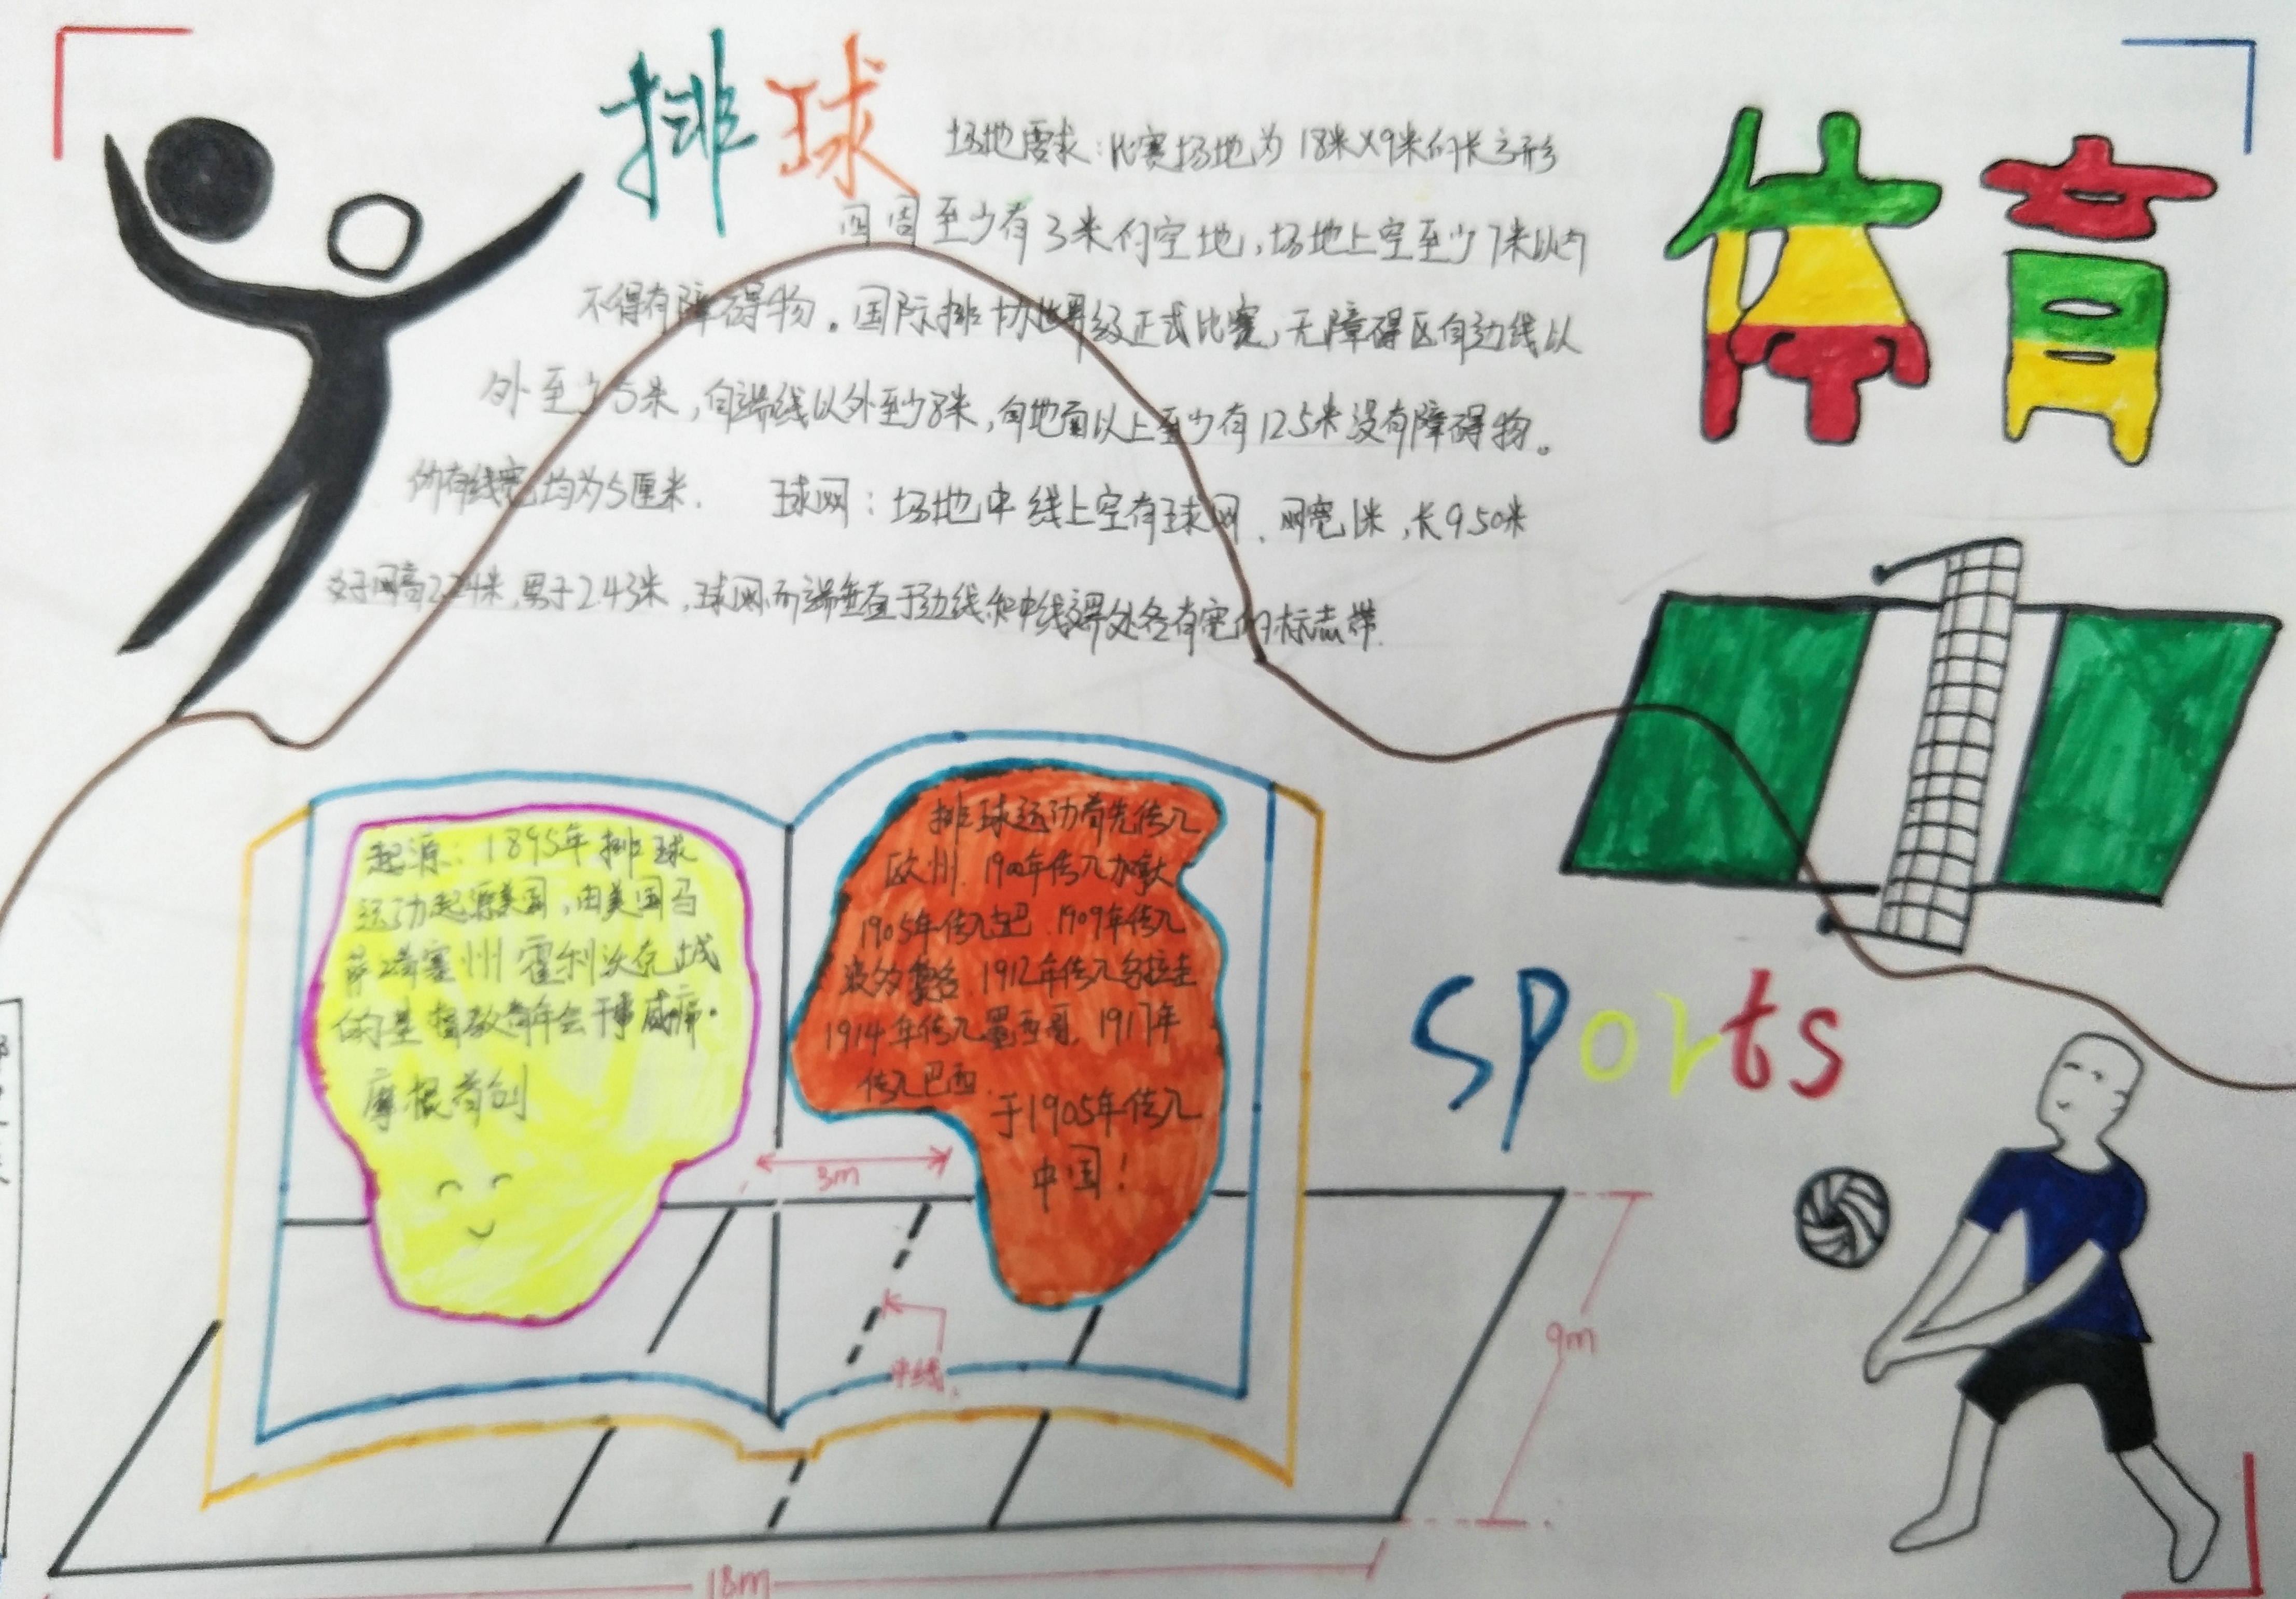 排球
体育
场地要求：比赛场地为18米×9米的长方形
四周至少有3米的空地，场地上空至少7米以内
不得有障碍物。国际排协世界级正式比赛，无障碍区自边线以
外至少5米，自端线以外至少8米，自地面以上至少有125米没有障碍物。
所有线宽均为5厘米. 球网：场地中线上空有球网、网宽1米，长950米
女子网高224米,男子243米，球网两端垂直于边线和中线交界处各有宽的标志带.
起源：1895年排球
运动起源美国，由美国马
萨诸塞州霍利沃克城
的基督教青年会干事威廉·
摩根首创
排球运动首先传入
欧州. 1900年传入加拿大
1905年传入古巴. 1909年传入
波多黎各. 1912年传入乌拉圭
1914年传入墨西哥. 1917年
传入巴西.
于1905年传入
中国！
sports
3m
中线.
9m
18m